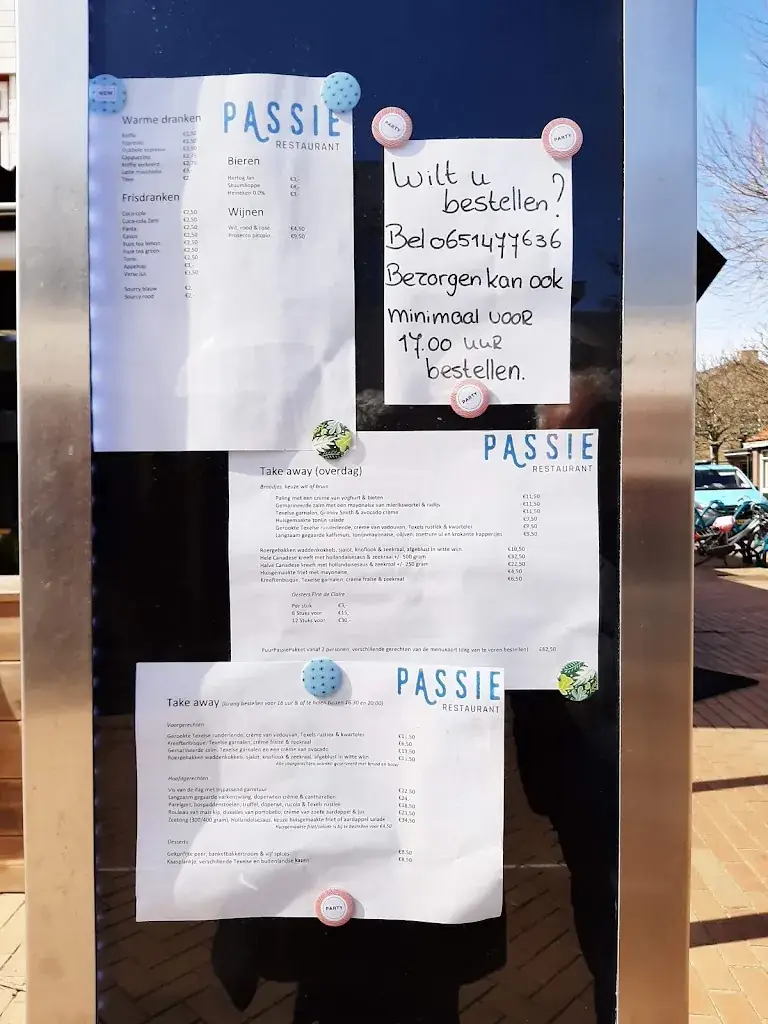 NEW
Warme dranken
Koffie €2,50
Espresso €2,50
Dubbele espresso
Cappuccino €2,75
Koffie verkeerd €2,75
Latte macchiato
Thee
Frisdranken
Coca-cola €2,50
Coca-cola Zero €2,50
Fanta €2,50
Cassis €2,50
Fuze tea lemon €2,50
Fuze tea green €2,50
Tonic €2,50
Appelsap
Verse jus €3,50
Sourcy blauw
Sourcy rood
PASSIE
RESTAURANT
Bieren
Hertog Jan €3,-
Skuumkoppe €4,-
Heineken 0.0% €3,-
Wijnen
Wit, rood & rosé €4,50
Prosecco piccolo €9,50
PARTY
PARTY
Wilt u
bestellen?
Bel 0651477636
Bezorgen kan ook
minimaal voor
17.00 uur
bestellen.
PARTY
PASSIE
RESTAURANT
Take away (overdag)
Broodjes, keuze wit of bruin
Paling met een crème van yoghurt & bieten €11,50
Gemarineerde zalm met een mayonaise van mierikswortel & radijs €11,50
Texelse garnalen, Granny Smith & avocado crème €11,50
Huisgemaakte tonijn salade
Gerookte Texelse runderlende, crème van vadouvan, Texels rustiek & kwartelei €9,50
Langzaam gegaarde kalfsmuis, tonijnmayonaise, olijven, zoetzure ui en krokante kappertjes €9,50
Roergebakken waddenkokkels, sjalot, knoflook & zeekraal, afgeblust in witte wijn €10,50
Hele Canadese kreeft met hollandaisesaus & zeekraal +/- 500 gram
Halve Canadese kreeft met hollandaisesaus & zeekraal +/- 250 gram €22,50
Huisgemaakte friet met mayonaise €4,50
Kreeftenbisque, Texelse garnalen, crème fraîche & zeekraal €6,50
Oesters Fine de Claire
Per stuk €3,-
6 Stuks voor €15,-
12 Stuks voor €30,-
PuurPassiePakket vanaf 2 personen, verschillende gerechten van de menukaart (dag van te voren bestellen)
PASSIE
RESTAURANT
Take away (Graag bestellen voor 16 uur & af te halen tussen 16:30 en 20:00)
Voorgerechten
Gerookte Texelse runderlende, crème van vadouvan, Texels rustiek & kwartelei €11,50
Kreeftenbisque, Texelse garnalen, crème fraîche & zeekraal €6,50
Gemarineerde zalm, Texelse garnalen en een crème van avocado €13,50
Roergebakken waddenkokkels, sjalot, knoflook & zeekraal, afgeblust in witte wijn €11,50
Alle voorgerechten worden geserveerd met brood en boter
Hoofdgerechten
Vis van de dag met bijpassend garnituur €22,50
Langzaam gegaarde varkenswang, doperwten crème & cantharellen
Parelgort, bospaddenstoelen, truffel, doperwt, rucola & Texels rustiek €18,50
Rouleau van maiskip, duxelles van portobello, crème van zoete aardappel & jus €21,50
Zeetong (300/400 gram), hollandaisesaus, keuze huisgemaakte friet of aardappel salade €34,50
Huisgemaakte friet/salade is bij te bestellen voor €4,50
Desserts
Gekonfijte peer, banketbakkersroom & vijf spices €8,50
Kaasplankje, verschillende Texelse en buitenlandse kazen €8,50
PARTY